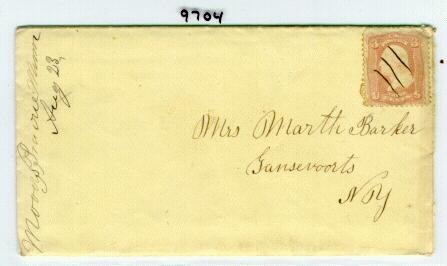 9704
Moores Prairie Minn
Aug 23,
3 3
Mrs Marth Barker
Gansevoorts
NY